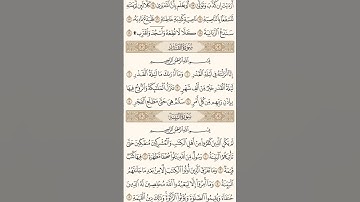 أَرَءَيْتَ إِن كَذَّبَ وَتَوَلَّىٰٓ ۝ أَلَمْ يَعْلَم بِأَنَّ ٱللَّهَ يَرَىٰ ۝ كَلَّا لَئِن لَّمْ يَنتَهِ
لَنَسْفَعًۢا بِٱلنَّاصِيَةِ ۝ نَاصِيَةٍ كَـٰذِبَةٍ خَاطِئَةٍ ۝ فَلْيَدْعُ نَادِيَهُۥ ۝
سَنَدْعُ ٱلزَّبَانِيَةَ ۝ كَلَّا لَا تُطِعْهُ وَٱسْجُدْ وَٱقْتَرِب ۩ ۝
سُورَةُ الْقَدْرِ
بِسْمِ ٱللَّهِ ٱلرَّحْمَـٰنِ ٱلرَّحِيمِ
إِنَّآ أَنزَلْنَـٰهُ فِى لَيْلَةِ ٱلْقَدْرِ ۝ وَمَآ أَدْرَىٰكَ مَا لَيْلَةُ ٱلْقَدْرِ ۝
لَيْلَةُ ٱلْقَدْرِ خَيْرٌ مِّنْ أَلْفِ شَهْرٍ ۝ تَنَزَّلُ ٱلْمَلَـٰٓئِكَةُ وَٱلرُّوحُ فِيهَا
بِإِذْنِ رَبِّهِم مِّن كُلِّ أَمْرٍ ۝ سَلَـٰمٌ هِىَ حَتَّىٰ مَطْلَعِ ٱلْفَجْرِ ۝
سُورَةُ الْبَيِّنَةِ
بِسْمِ ٱللَّهِ ٱلرَّحْمَـٰنِ ٱلرَّحِيمِ
لَمْ يَكُنِ ٱلَّذِينَ كَفَرُوا۟ مِنْ أَهْلِ ٱلْكِتَـٰبِ وَٱلْمُشْرِكِينَ مُنفَكِّينَ حَتَّىٰ
تَأْتِيَهُمُ ٱلْبَيِّنَةُ ۝ رَسُولٌ مِّنَ ٱللَّهِ يَتْلُوا۟ صُحُفًا مُّطَهَّرَةً ۝ فِيهَا كُتُبٌ
قَيِّمَةٌ ۝ وَمَا تَفَرَّقَ ٱلَّذِينَ أُوتُوا۟ ٱلْكِتَـٰبَ إِلَّا مِنۢ بَعْدِ مَا جَآءَتْهُمُ
ٱلْبَيِّنَةُ ۝ وَمَآ أُمِرُوٓا۟ إِلَّا لِيَعْبُدُوا۟ ٱللَّهَ مُخْلِصِينَ لَهُ ٱلدِّينَ
حُنَفَآءَ وَيُقِيمُوا۟ ٱلصَّلَوٰةَ وَيُؤْتُوا۟ ٱلزَّكَوٰةَ وَذَٰلِكَ دِينُ ٱلْقَيِّمَةِ